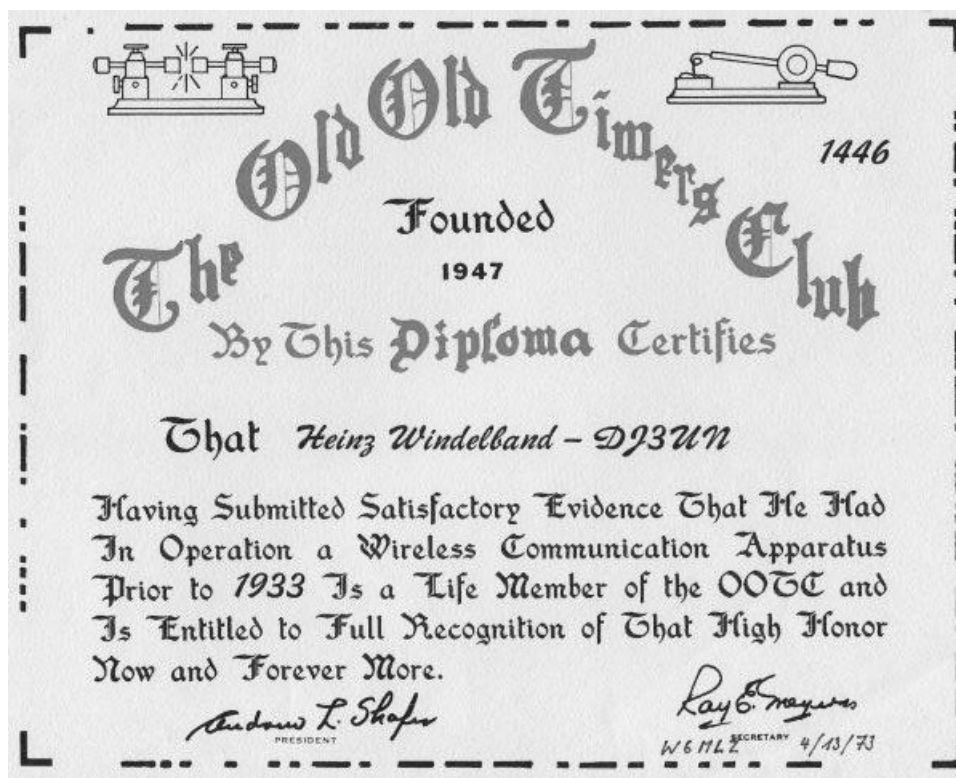 The Old Old Timers Club
1446
Founded
1947
By This Diploma Certifies
That Heinz Windelband – DJ3UN
Having Submitted Satisfactory Evidence That He Had
In Operation a Wireless Communication Apparatus
Prior to 1933 Is a Life Member of the OOTC and
Is Entitled to Full Recognition of That High Honor
Now and Forever More.
Andrew L. Shafer
Ray E. Meyers
PRESIDENT
SECRETARY
W6MLZ 4/13/73